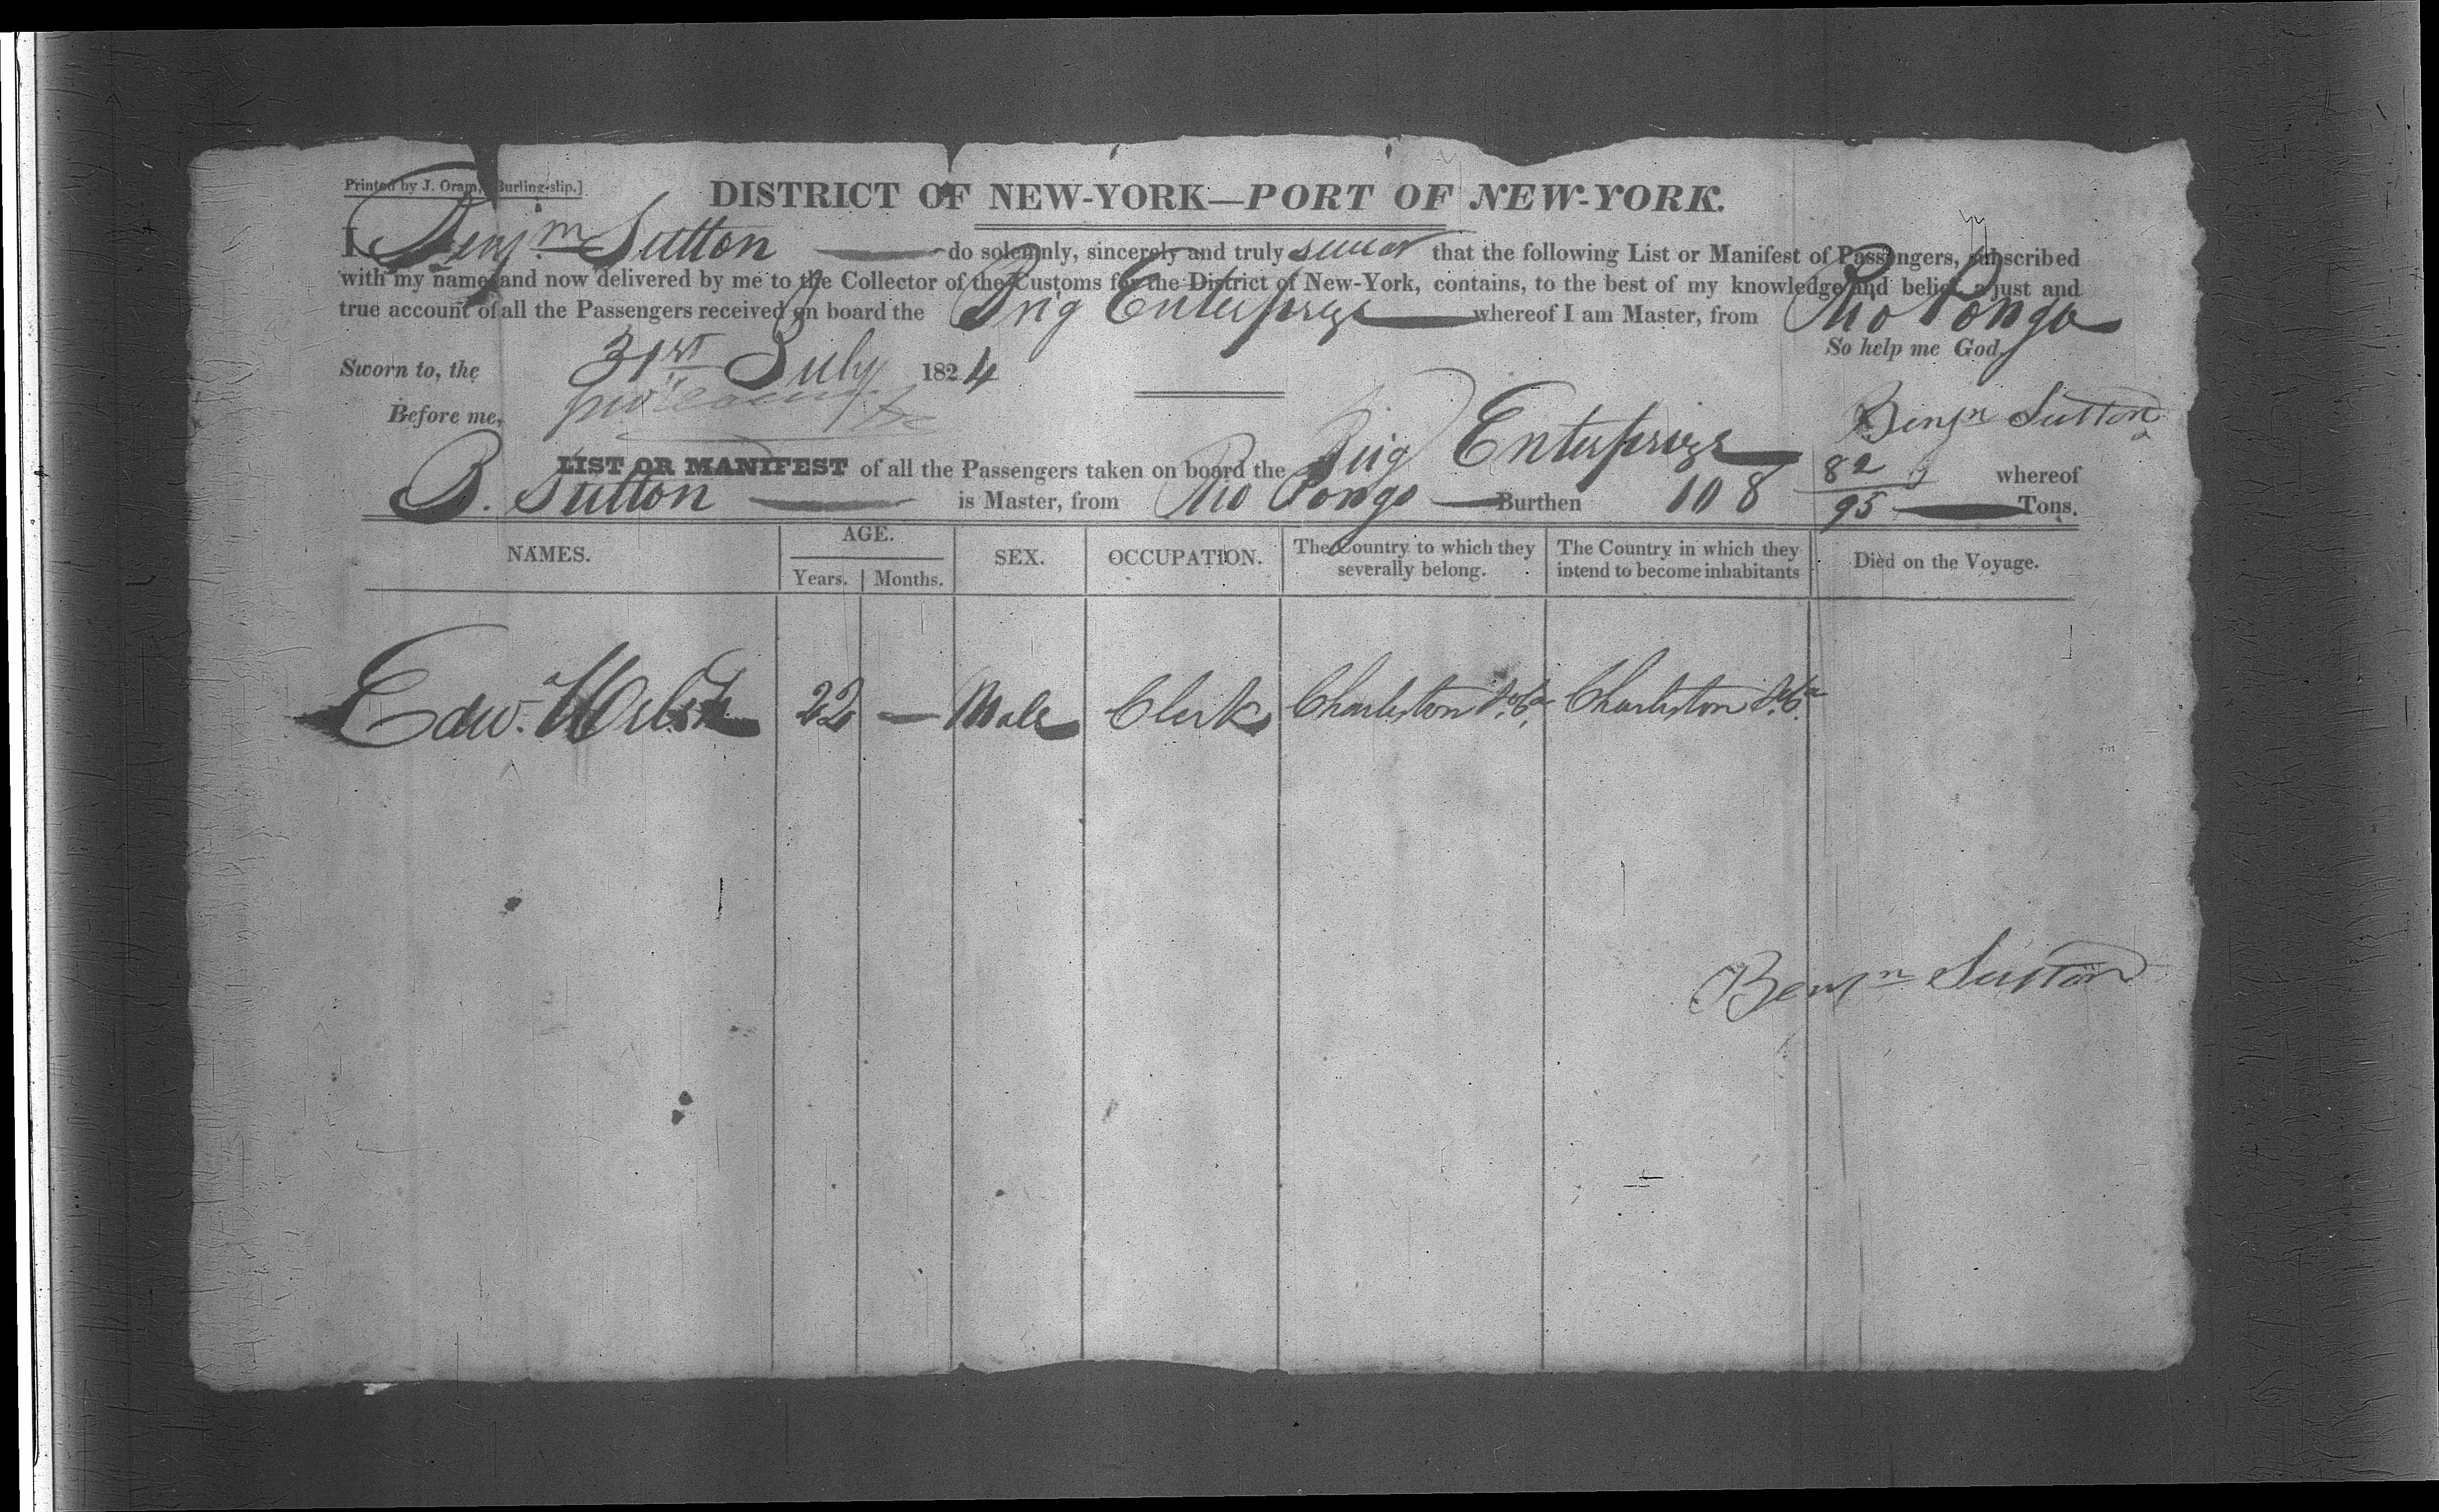 Printed by J. Oram, Burling-slip.]
DISTRICT OF NEW-YORK—PORT OF NEW-YORK.
I Benjm Sutton do solemnly, sincerely and truly swear that the following List or Manifest of Passengers, subscribed
with my name and now delivered by me to the Collector of the Customs for the District of New-York, contains, to the best of my knowledge and belief, a just and
true account of all the Passengers received on board the Brig Enterprize whereof I am Master, from Rio Pongo
So help me God.
Sworn to, the 31st July 1824
Before me,
Benjn Sutton
LIST OR MANIFEST of all the Passengers taken on board the Brig Enterprize whereof
B. Sutton is Master, from Rio Pongo Burthen 108 82/95 Tons.
NAMES. AGE. Years. Months. SEX. OCCUPATION. The Country to which they severally belong. The Country in which they intend to become inhabitants Died on the Voyage.
Edwd 22 — Male Clerk Charleston So. Ca. Charleston So. Ca.
Benjn Sutton